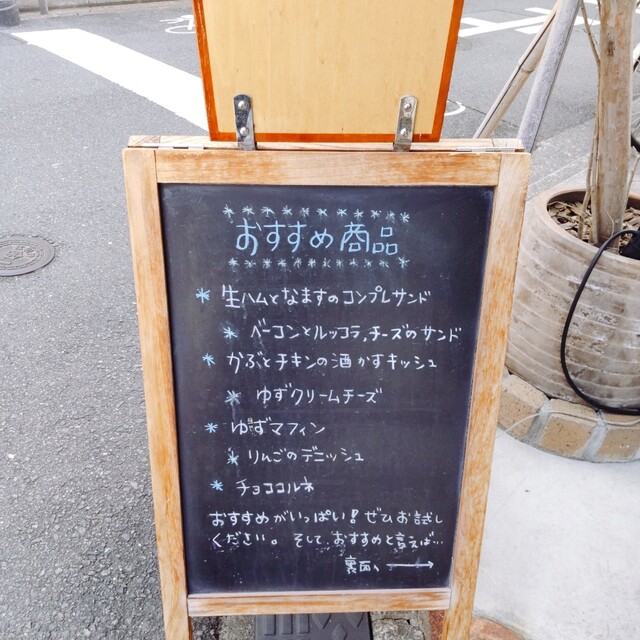 おすすめ商品
* 生ハムとなますのコンプレサンド
* ベーコンとルッコラ,チーズのサンド
* かぶとチキンの酒かすキッシュ
* ゆずクリームチーズ
* ゆずマフィン
* りんごのデニッシュ
* チョココルネ
おすすめがいっぱい!ぜひお試し
ください。そして、おすすめと言えば…
裏面へ→